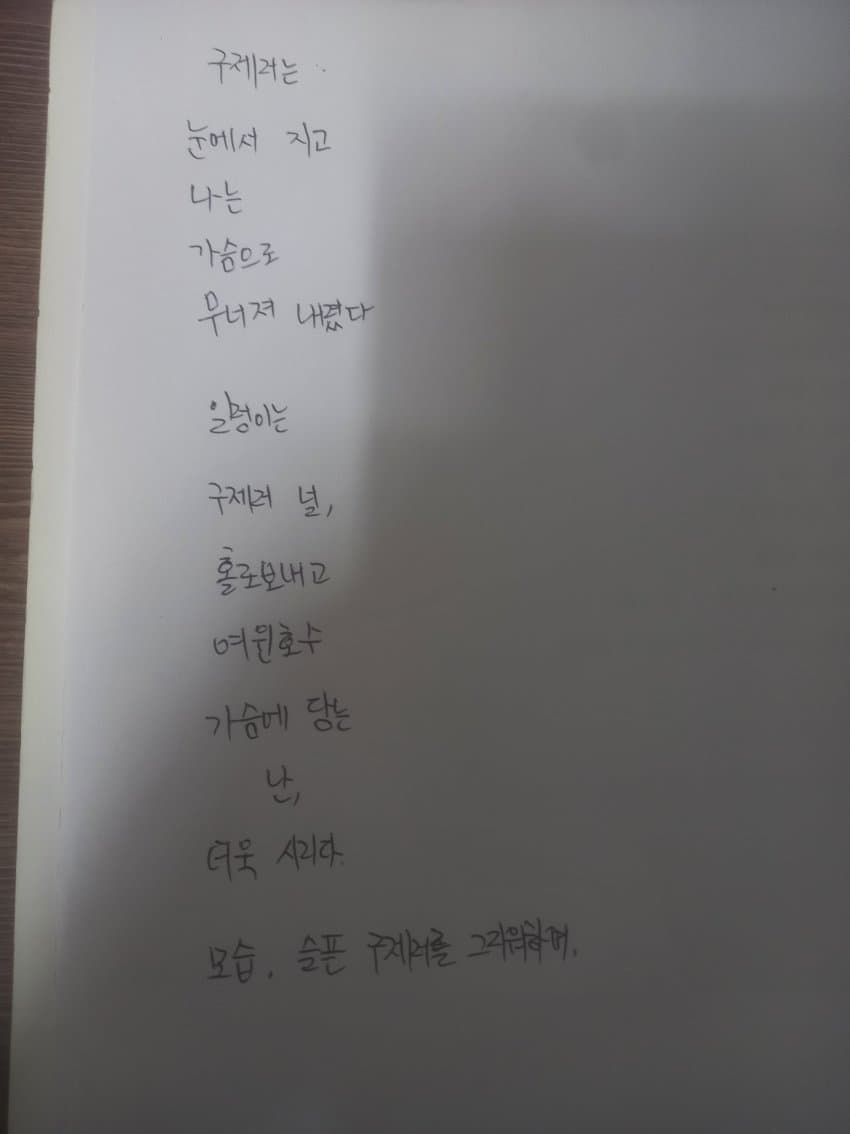 구제러는 ..
눈에서 지고
나는
가슴으로
무너져 내렸다
일렁이는
구제러 널,
홀로보내고
여윈호수
가슴에 당는
난,
더욱 시리다.
모습. 슬픈 구제러를 그리워하며.